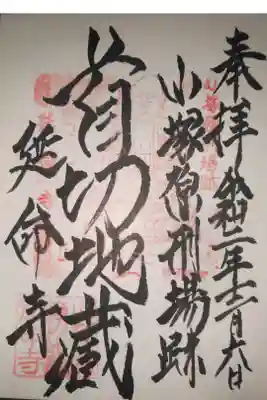 奉拝 令和二年十一月六日
小塚原刑場跡
首切地蔵
延命寺